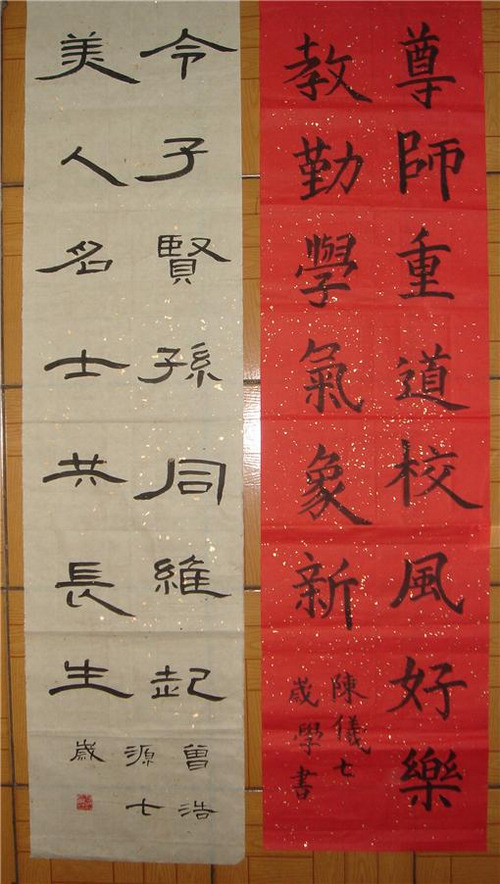 尊師重道校風好樂
教勤學氣象新
陳儀七
歲學書
令子賢孫同維起
美人名士共長生
曾浩
源七
歲